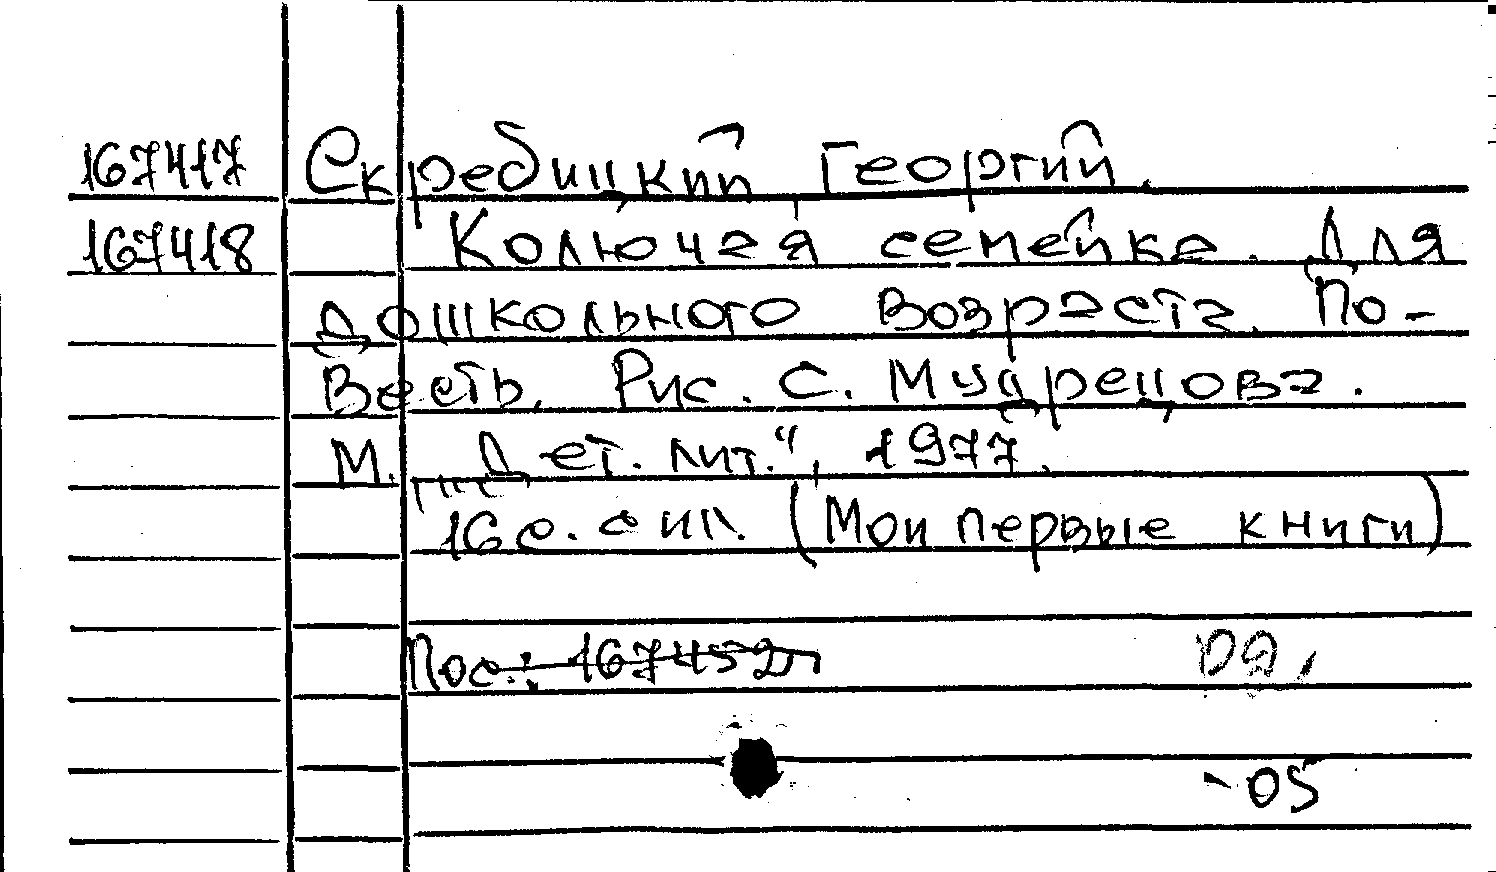 167417 Скребицкий Георгий.
167418 Колючая семейка. Для
дошкольного возраста. По-
весть. Рис. С. Мудрецова.
М. „Дет. лит.“, 1977.
16 с. с ил. (Мои первые книги)
Пос.: 167452
-05